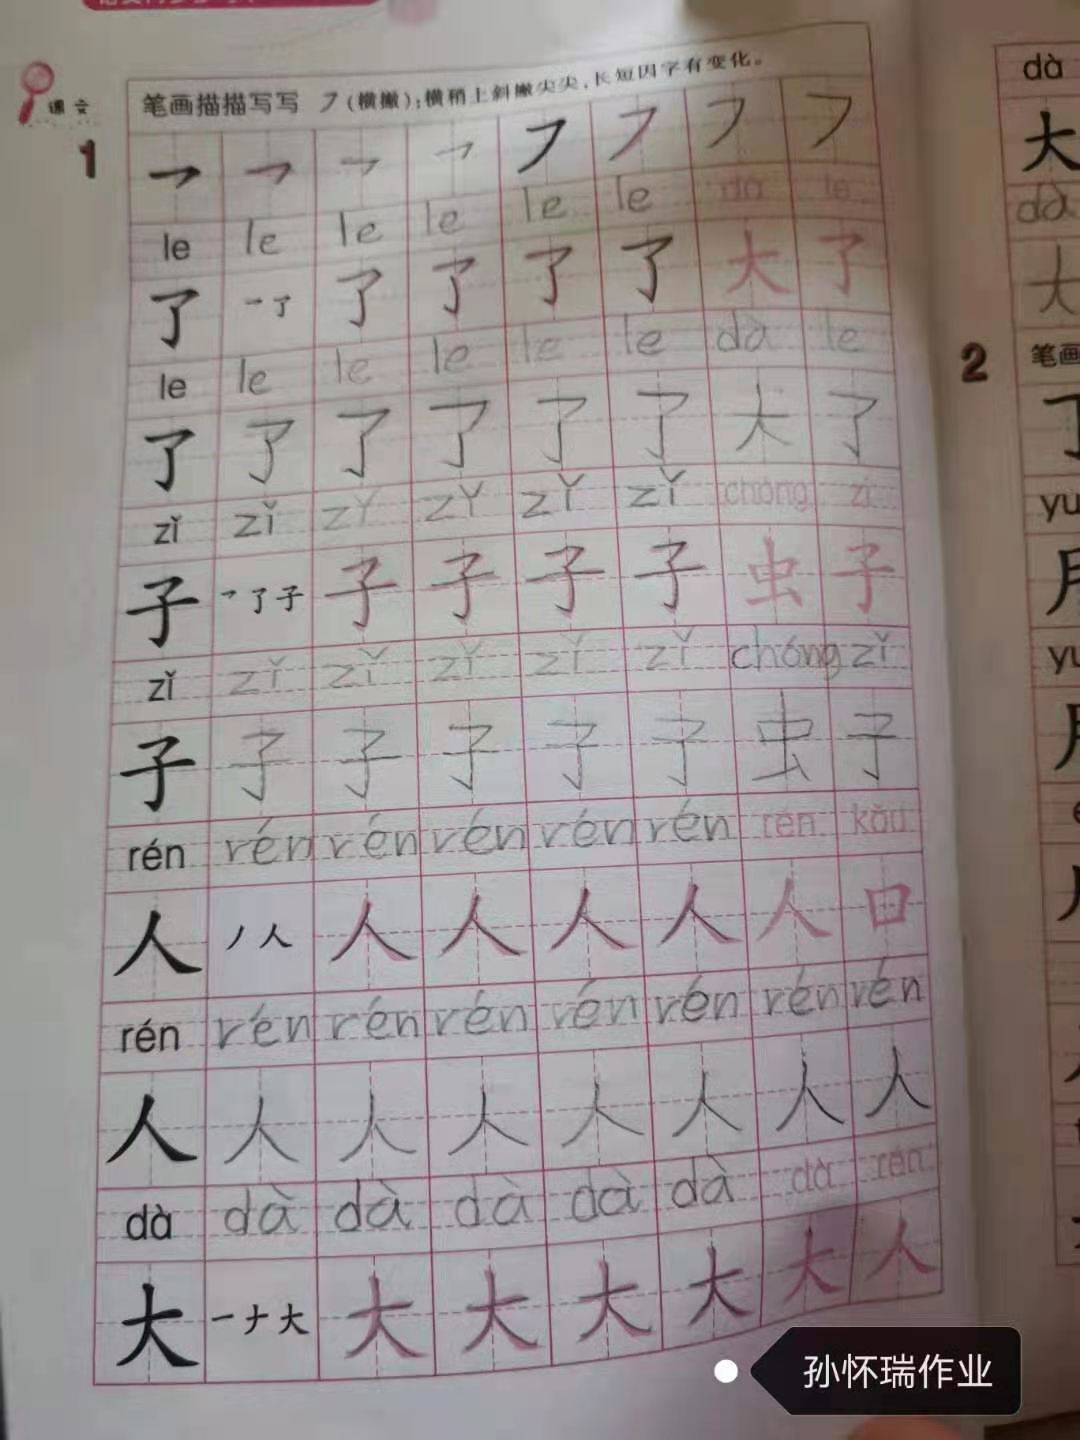 课文
1
笔画描描写写 ㇇(横撇):横稍上斜撇尖封,长短因字有变化。
le le le le le le dà le
了 了 了 了 了 了 大 了
le le le le le le dà le
了 了 了 了 了 了 大 了
zǐ zǐ zǐ zǐ zǐ zǐ chóng zi
子 了子 子 子 子 子 虫 子
zǐ zǐ zǐ zǐ zǐ zǐ chóng zǐ
子 子 子 子 子 子 虫 子
rén rén rén rén rén rén rén kǒu
人 丿人 人 人 人 人 人 口
rén rén rén rén rén rén rén rén
人 人 人 人 人 人 人 人
dà dà dà dà dà dà dà rén
大 一ナ大 大 大 大 大 大 人
dà
大
dà
大
2
笔画
孙怀瑞作业